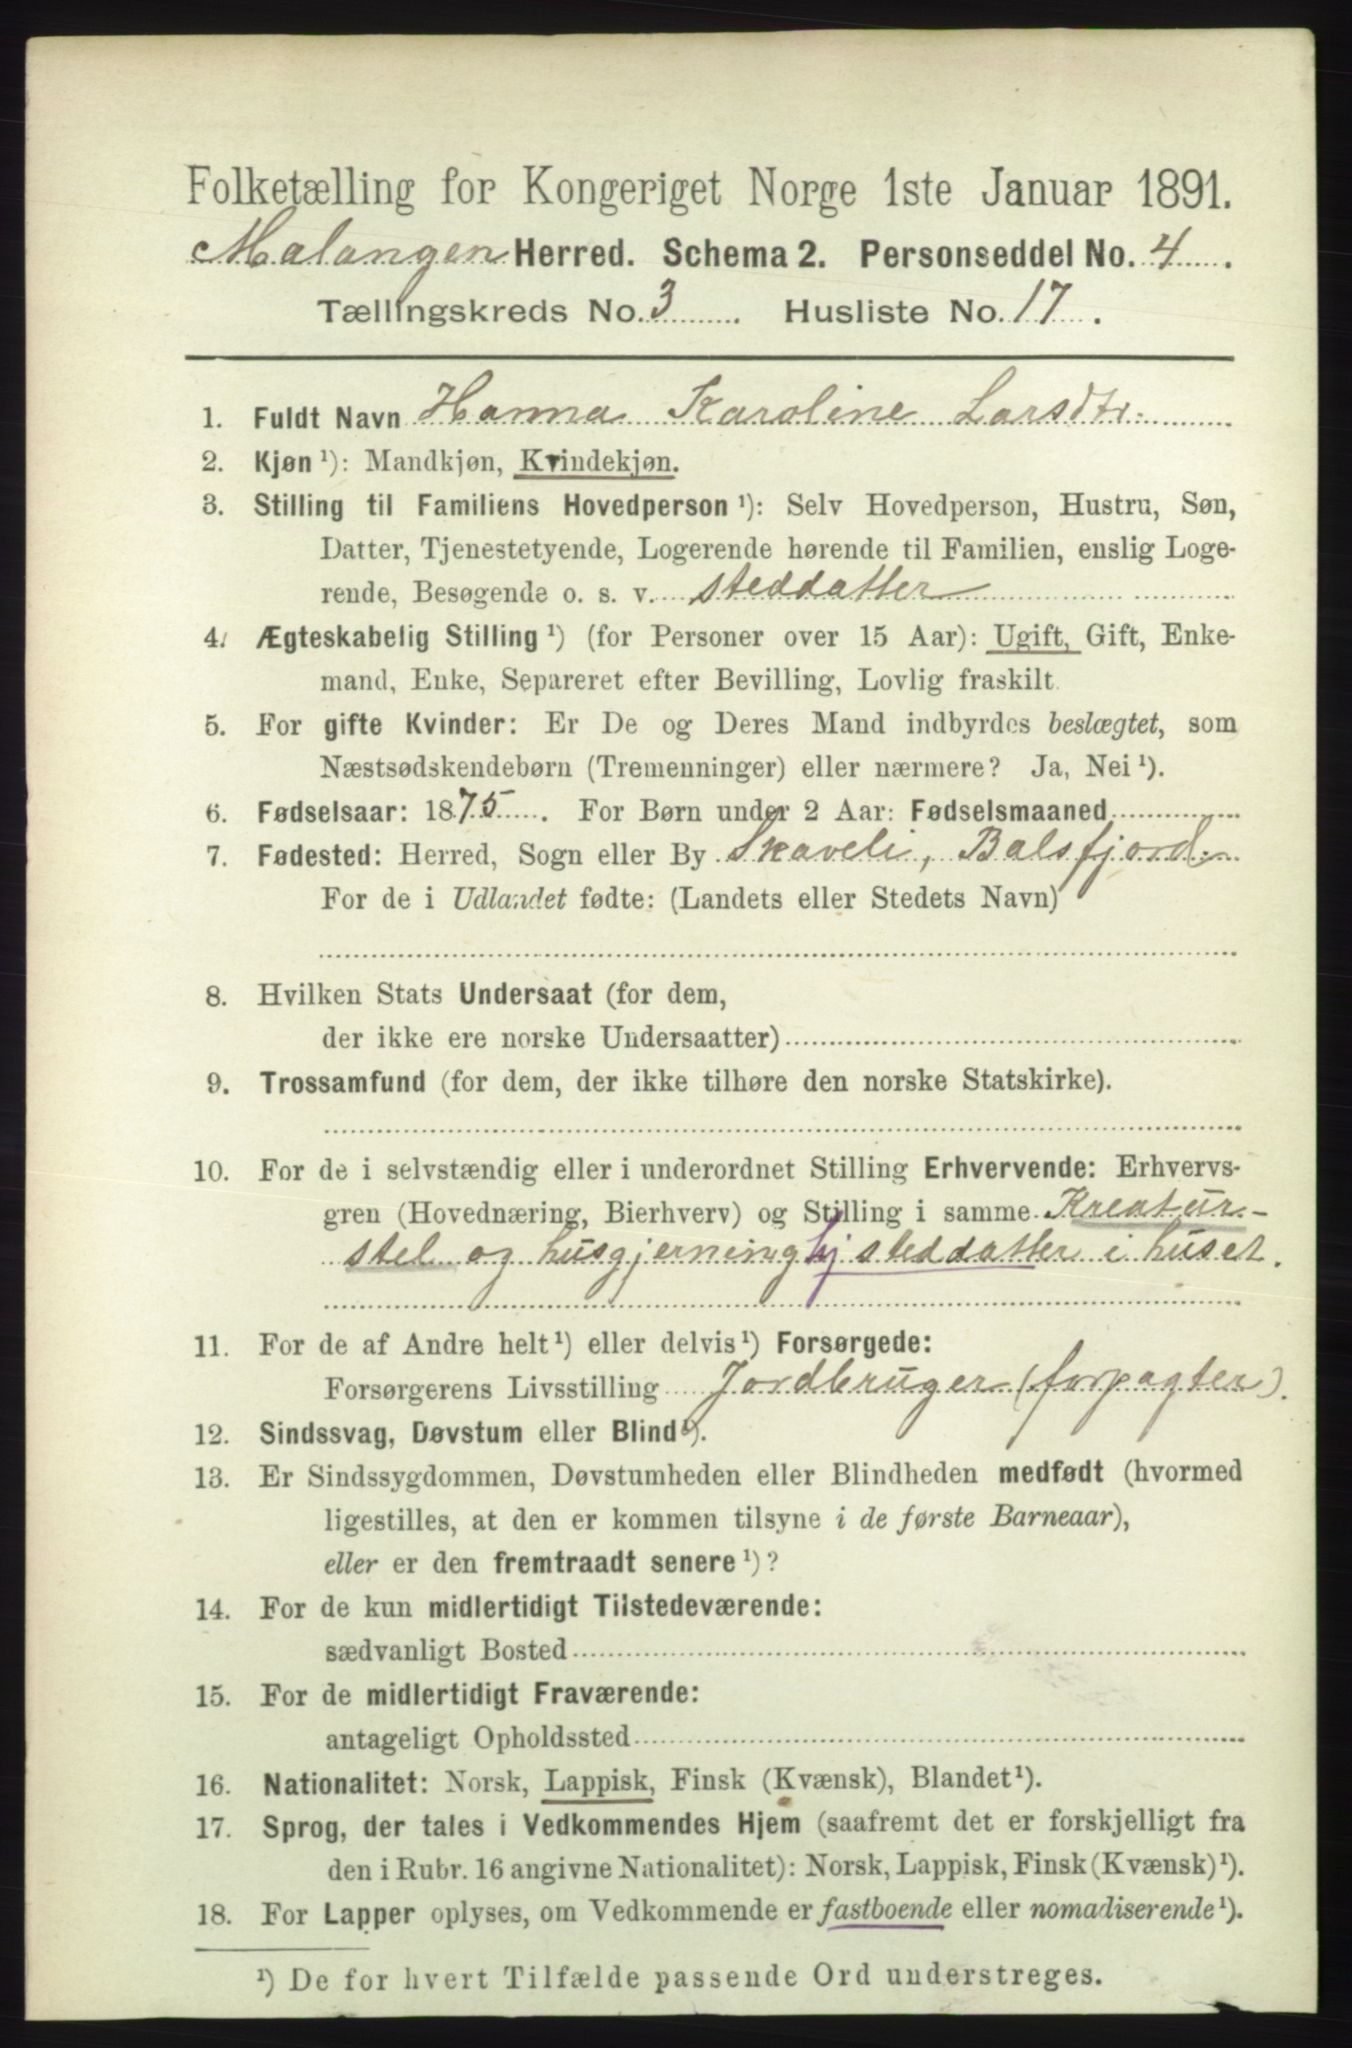 Folketælling for Kongeriget Norge 1ste Januar 1891.
Malangen Herred. Schema 2. Personseddel No. 4
Tællingskreds No. 3 Husliste No. 17.
1. Fuldt Navn Hanna Karoline Larsdtr.
2. Kjøn ¹): Mandkjøn, Kvindekjøn.
3. Stilling til Familiens Hovedperson ¹): Selv Hovedperson, Hustru, Søn,
Datter, Tjenestetyende, Logerende hørende til Familien, enslig Loge-
rende, Besøgende o. s. v. steddatter
4. Ægteskabelig Stilling ¹) (for Personer over 15 Aar): Ugift, Gift, Enke-
mand, Enke, Separeret efter Bevilling, Lovlig fraskilt.
5. For gifte Kvinder: Er De og Deres Mand indbyrdes beslægtet, som
Næstsødskendebørn (Tremenninger) eller nærmere? Ja, Nei ¹).
6. Fødselsaar: 1875. For Børn under 2 Aar: Fødselsmaaned
7. Fødested: Herred, Sogn eller By Skaveli, Balsfjord
For de i Udlandet fødte: (Landets eller Stedets Navn)
8. Hvilken Stats Undersaat (for dem,
der ikke ere norske Undersaatter)
9. Trossamfund (for dem, der ikke tilhøre den norske Statskirke).
10. For de i selvstændig eller i underordnet Stilling Erhvervende: Erhvervs-
gren (Hovednæring, Bierhverv) og Stilling i samme Kreatur-
stel og husgjerning hj steddatter i huset.
11. For de af Andre helt ¹) eller delvis ¹) Forsørgede:
Forsørgerens Livsstilling Jordbruger (forpagter).
12. Sindssvag, Døvstum eller Blind ¹).
13. Er Sindssygdommen, Døvstumheden eller Blindheden medfødt (hvormed
ligestilles, at den er kommen tilsyne i de første Barneaar),
eller er den fremtraadt senere ¹)?
14. For de kun midlertidigt Tilstedeværende:
sædvanligt Bosted
15. For de midlertidigt Fraværende:
antageligt Opholdssted
16. Nationalitet: Norsk, Lappisk, Finsk (Kvænsk), Blandet ¹).
17. Sprog, der tales i Vedkommendes Hjem (saafremt det er forskjelligt fra
den i Rubr. 16 angivne Nationalitet): Norsk, Lappisk, Finsk (Kvænsk) ¹).
18. For Lapper oplyses, om Vedkommende er fastboende eller nomadiserende ¹).
¹) De for hvert Tilfælde passende Ord understreges.